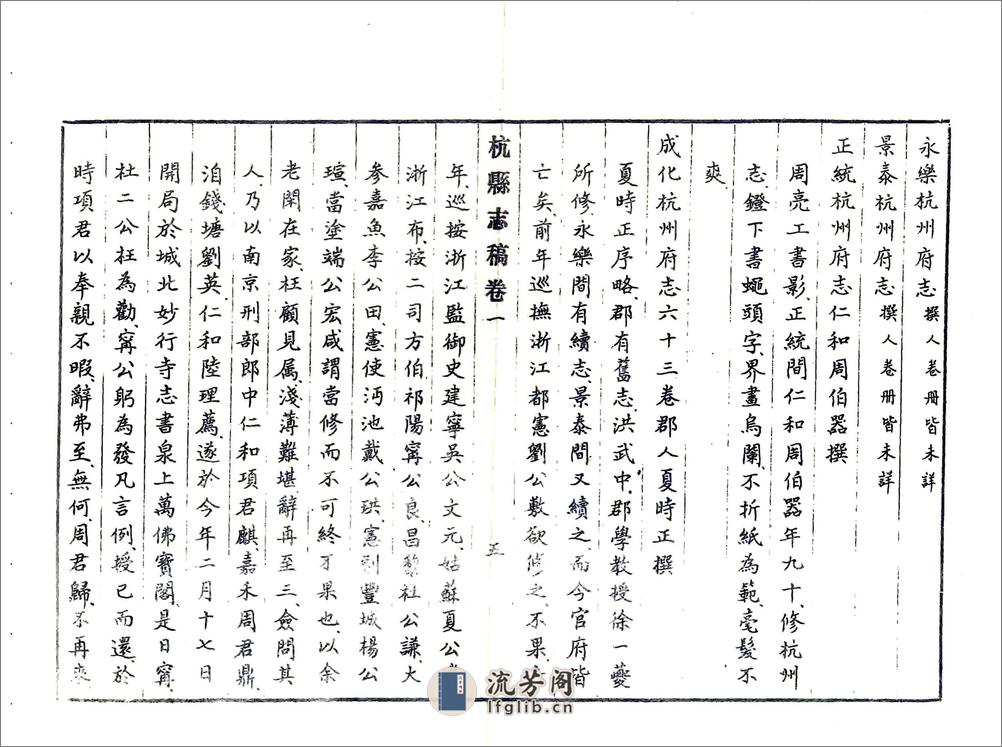 永樂杭州府志撰人卷册皆未詳
景泰杭州府志撰人卷册皆未詳
正統杭州府志仁和周伯器撰
周亮工書影、正統間仁和周伯器年九十、修杭州
志、鐙下書蠅頭字、界畫烏闌、不折紙為範、毫髮不
爽、
成化杭州府志六十三卷郡人夏時正撰
夏時正序略、郡有舊志、洪武中、郡學教授徐一夔
所修、永樂間有續志、景泰間又續之、而今官府皆
亡矣、前年巡撫浙江都憲劉公敷欲修之、不果、
杭縣志稿卷一
五
年、巡按浙江監御史建寧吳公文元、姑蘇夏公
浙江布、按二司方伯祁陽甯公良、昌黎杜公謙、大
參嘉魚李公田、憲使沔池戴公珙、憲副豐城楊公
瑄、當塗端公宏、咸謂當修而不可終不果也、以余
老閑在家、枉顧見属、淺薄難堪、辭再至三、僉問其
人、乃以南京刑部郎中仁和項君麒、嘉禾周君鼎、
洎錢塘劉英、仁和陸理薦、遂於今年二月十七日
開局於城北妙行寺志書泉上萬佛寶閣、是日甯、
杜二公枉為勸、甯公躬為發凡言例、授已而還、於
時項君以奉親不暇、辭弗至、無何、周君歸、不再來
流芳阁
lfglib.cn